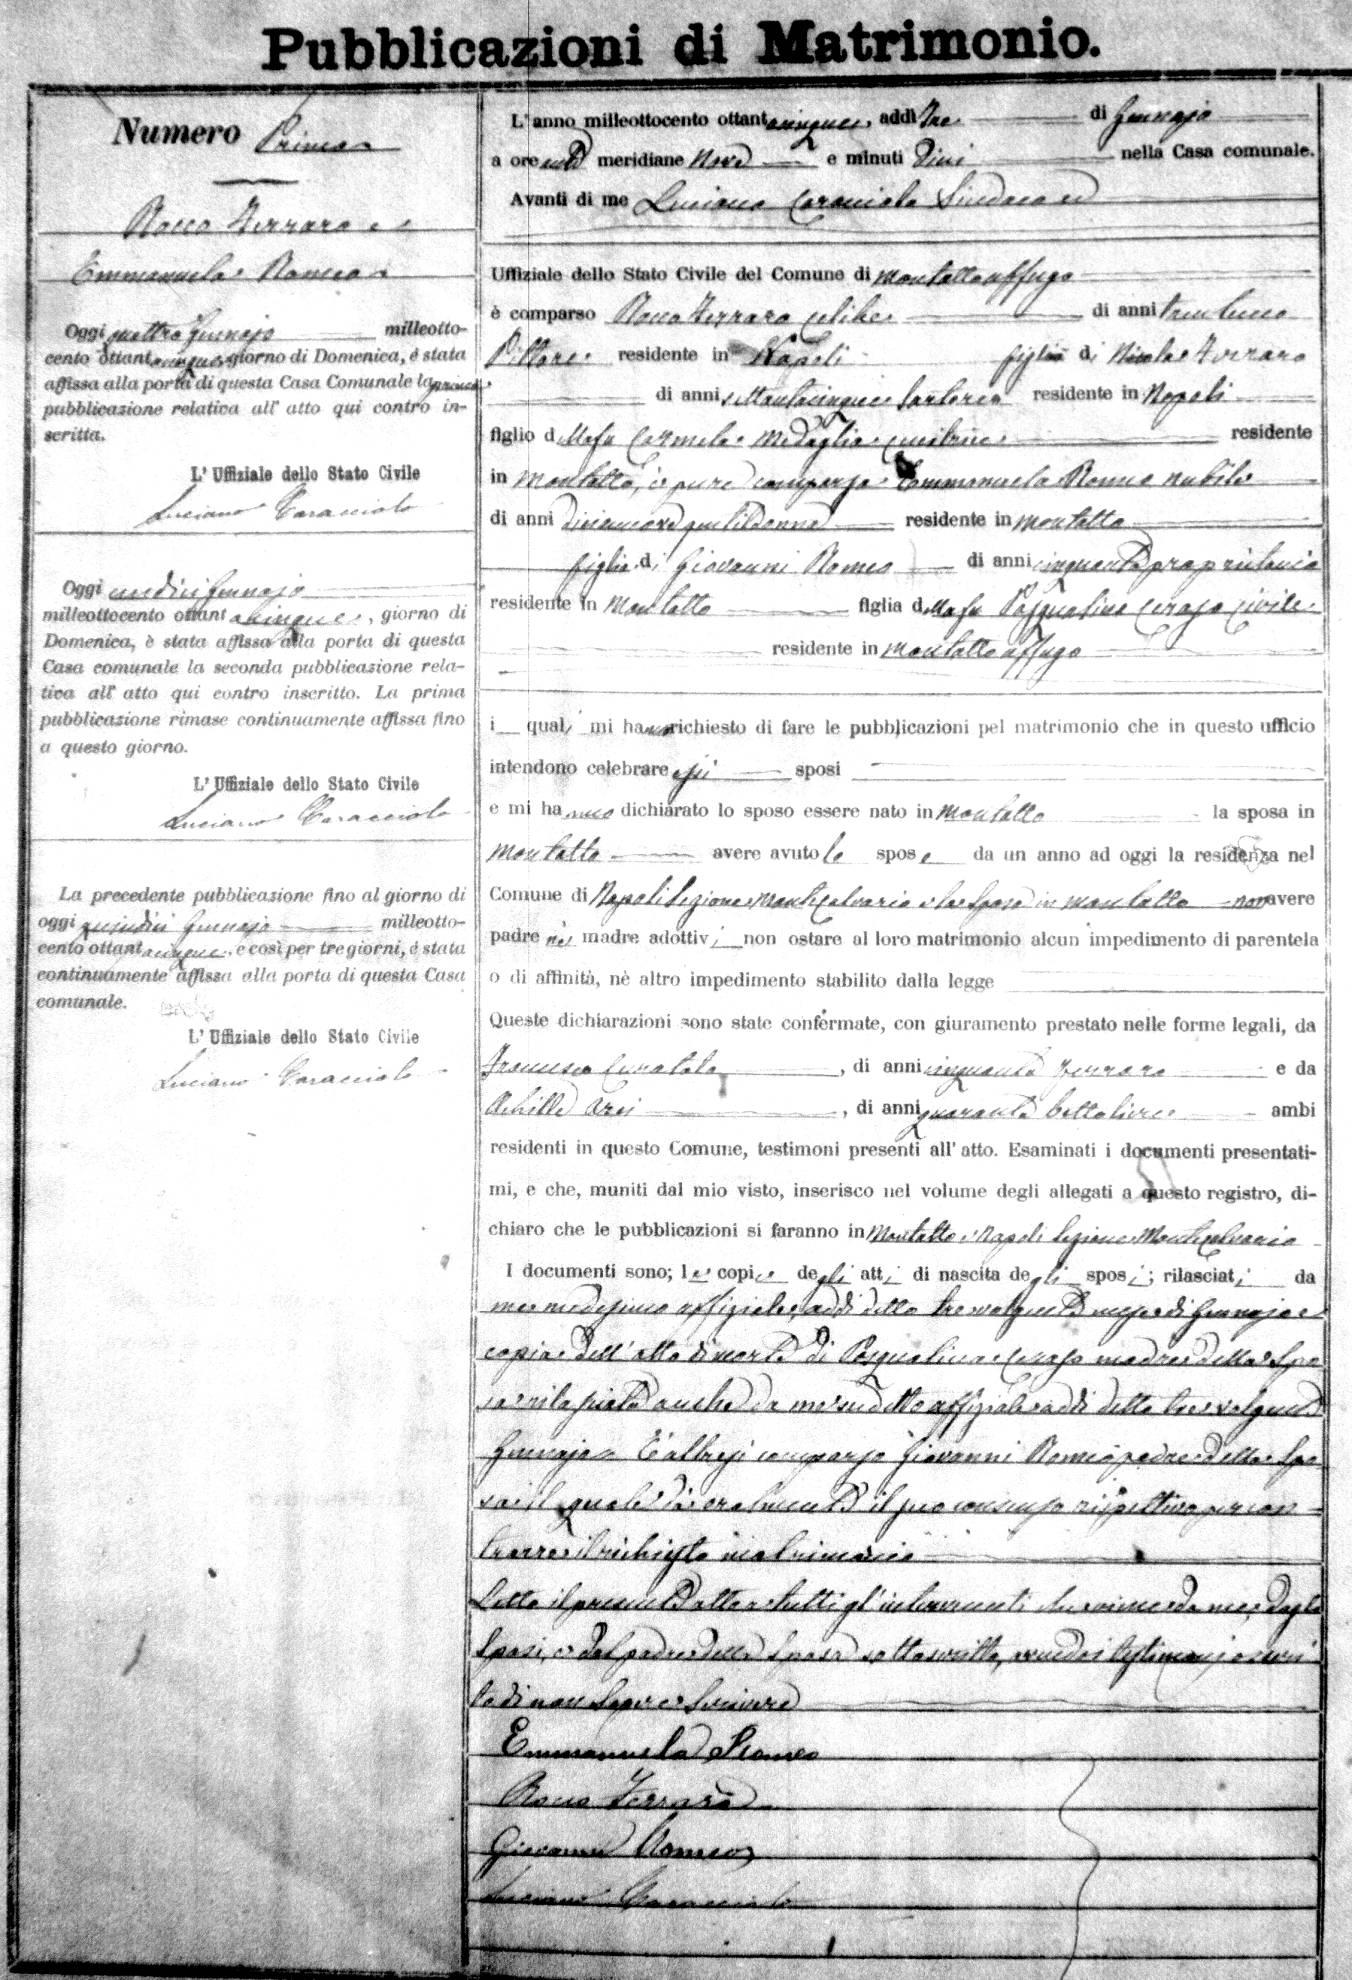 Pubblicazioni di Matrimonio.
Numero Primo
Rocco Ferraro e
Emmanuela Romeo
Oggi quattro Gennajo milleotto-
cento ottantacinque giorno di Domenica, è stata
affissa alla porta di questa Casa Comunale la prima
pubblicazione relativa all' atto qui contro in-
scritta.
L' Uffiziale dello Stato Civile
Luciano Caracciolo
Oggi undici Gennajo
milleottocento ottantacinque, giorno di
Domenica, è stata affissa alla porta di questa
Casa comunale la seconda pubblicazione rela-
tiva all' atto qui contro inscritto. La prima
pubblicazione rimase continuamente affissa fino
a questo giorno.
L' Uffiziale dello Stato Civile
Luciano Caracciolo
La precedente pubblicazione fino al giorno di
oggi quindici Gennajo milleotto-
cento ottantacinque, e così per tre giorni, è stata
continuamente affissa alla porta di questa Casa
comunale.
L' Uffiziale dello Stato Civile
Luciano Caracciolo
L' anno milleottocento ottantacinque, addì tre di Gennajo
a ore anti meridiane Nove e minuti Dieci nella Casa comunale.
Avanti di me Luciano Caracciolo Sindaco ed
Uffiziale dello Stato Civile del Comune di Montaltouffugo
è comparso Rocco Ferraro celibe di anni
Pittore residente in Napoli figlio di Nicola Ferraro
di anni settantacinque residente in Napoli
figlio della fu Carmela Medaglia cucitrice residente
in Montalto, è pure comparsa Emmanuela Romeo nubile
di anni diciannove gentildonna residente in Montalto
figlia di Giovanni Romeo di anni cinquanta proprietario
residente in Montalto figlia della fu Pasqualina Cerajo Civile
residente in Montaltouffugo
i quali mi hanno richiesto di fare le pubblicazioni pel matrimonio che in questo ufficio
intendono celebrare essi sposi
e mi hanno dichiarato lo sposo essere nato in Montalto la sposa in
Montalto avere avuto lo spos da un anno ad oggi la residenza nel
Comune di Napoli Sezione Montecalvario e la Sposa in Montalto non avere
padre nè madre adottivi non ostare al loro matrimonio alcun impedimento di parentela
o di affinità, nè altro impedimento stabilito dalla legge
Queste dichiarazioni sono state confermate, con giuramento prestato nelle forme legali, da
Francesco Curatolo, di anni cinquanta Ferraro e da
Achille Arsi, di anni quaranta bettoliere ambi
residenti in questo Comune, testimoni presenti all' atto. Esaminati i documenti presentati-
mi, e che, muniti dal mio visto, inserisco nel volume degli allegati a questo registro, di-
chiaro che le pubblicazioni si faranno in Montalto e Napoli Sezione Montecalvario
I documenti sono; le copie degli atti di nascita degli sposi; rilasciati da
me medesimo uffiziale, addì detto tre volgente mese di Gennajo e
copia dell' atto di morte di Pasqualina Cerajo madre della Spo
sa rilasciata anche da me sudetto uffiziale addì detto tre volgente
Gennajo. E' altresì comparso Giovanni Romeo padre della Spo
sa il quale dà oralmente il suo consenso rispettivo per con-
trarre il richiesto matrimonio
Letto il presente atto a tutti gl' intervenuti da me, dagli
Sposi, e dal padre della Sposa sottoscritto, avendo i testimonj asseri
to di non sapere scrivere
Emmanuela Romeo
Rocco Ferraro
Giovanni Romeo
Luciano Caracciolo